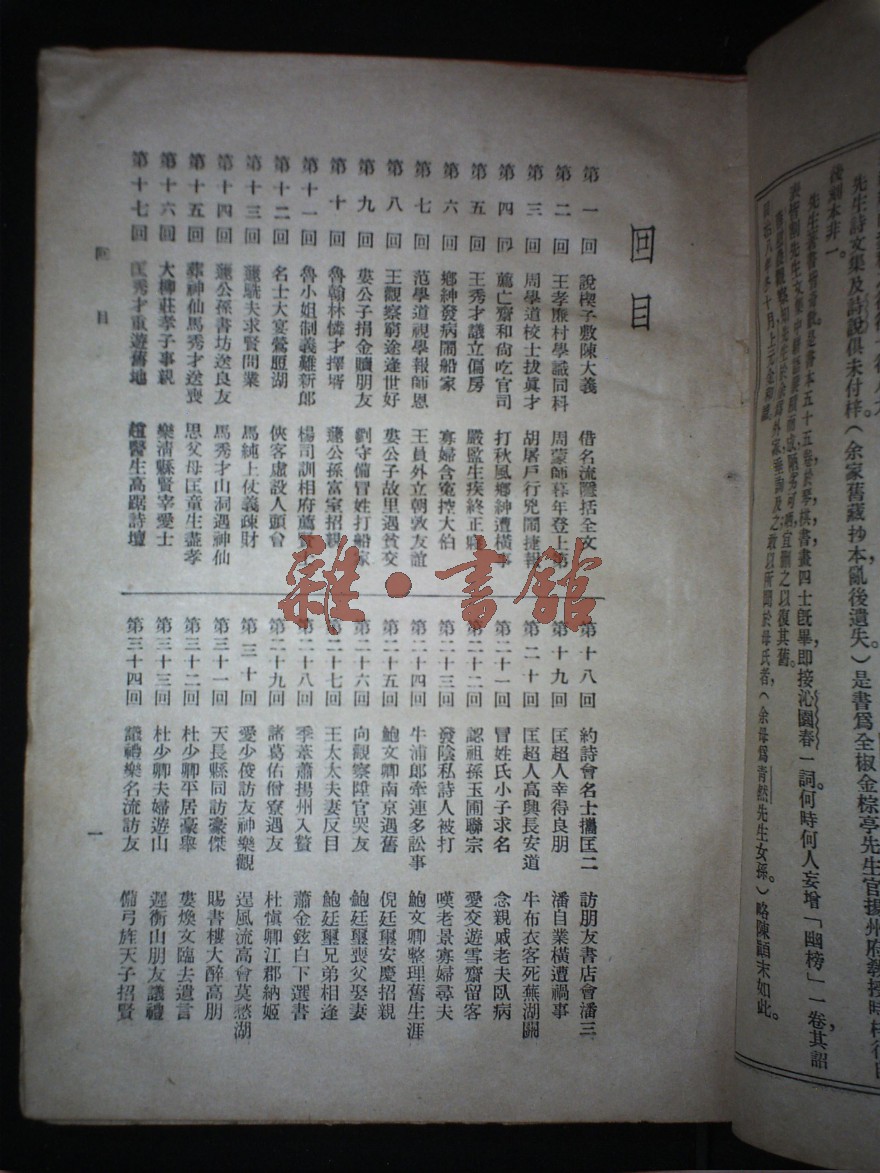 先生詩文集及詩說俱未付梓。(余家舊藏抄本亂後遺失)是書爲全椒金棕亭先生官揚州府教授時梓行
後刻本非一。
是書本五十五卷,於琴棋書畫四士旣畢,卽接沁園春一詞。何時何人妄增「幽榜」一卷,其詔
宜刪之以復其舊。
敢以所聞於母氏者,(余母爲青然先生女孫。)略陳顚末如此。
回目
第一回 說楔子敷陳大義 借名流隱括全文
第二回 王孝廉村學識同科 周蒙師暮年登上第
第三回 周學道校士拔眞才 胡屠戶行兇鬧捷報
第四回 薦亡齋和尙吃官司 打秋風鄉紳遭橫事
第五回 王秀才議立偏房 嚴監生疾終正寢
第六回 鄉紳發病鬧船家 寡婦含冤控大伯
第七回 范學道視學報師恩 王員外立朝敦友誼
第八回 王觀察窮途逢世好 婁公子故里遇貧交
第九回 婁公子捐金贖朋友 劉守備冒姓打船家
第十回 魯翰林憐才擇壻 蘧公孫富室招親
第十一回 魯小姐制義難新郎 楊司訓相府薦賢士
第十二回 名士大宴鶯脰湖 俠客虛設人頭會
第十三回 蘧駪夫求賢問業 馬純上仗義疎財
第十四回 蘧公孫書坊送良友 馬秀才山洞遇神仙
第十五回 葬神仙馬秀才送喪 思父母匡童生盡孝
第十六回 大柳莊孝子事親 樂淸縣賢宰愛士
第十七回 匡秀才重遊舊地 趙醫生高踞詩壇
第十八回 約詩會名士攜匡二 訪朋友書店會潘三
第十九回 匡超人幸得良朋 潘自業橫遭禍事
第二十回 匡超人高興長安道 牛布衣客死蕪湖關
第二十一回 冒姓氏小子求名 念親戚老夫臥病
第二十二回 認祖孫玉圃聯宗 愛交遊雪齋留客
第二十三回 發陰私詩人被打 嘆老景寡婦尋夫
第二十四回 牛浦郎牽連多訟事 鮑文卿整理舊生涯
第二十五回 鮑文卿南京遇舊 倪廷璽安慶招親
第二十六回 向觀察陞官哭友 鮑廷璽喪父娶妻
第二十七回 王太太夫妻反目 鮑廷璽兄弟相逢
第二十八回 季葦蕭揚州入贅 蕭金鉉白下選書
第二十九回 諸葛佑僧寮遇友 杜愼卿江郡納姬
第三十回 愛少俊訪友神樂觀 逞風流高會莫愁湖
第三十一回 天長縣同訪豪傑 賜書樓大醉高朋
第三十二回 杜少卿平居豪舉 婁煥文臨去遺言
第三十三回 杜少卿夫婦遊山 遲衡山朋友議禮
第三十四回 議禮樂名流訪友 備弓旌天子招賢
回目
一
雜·書館